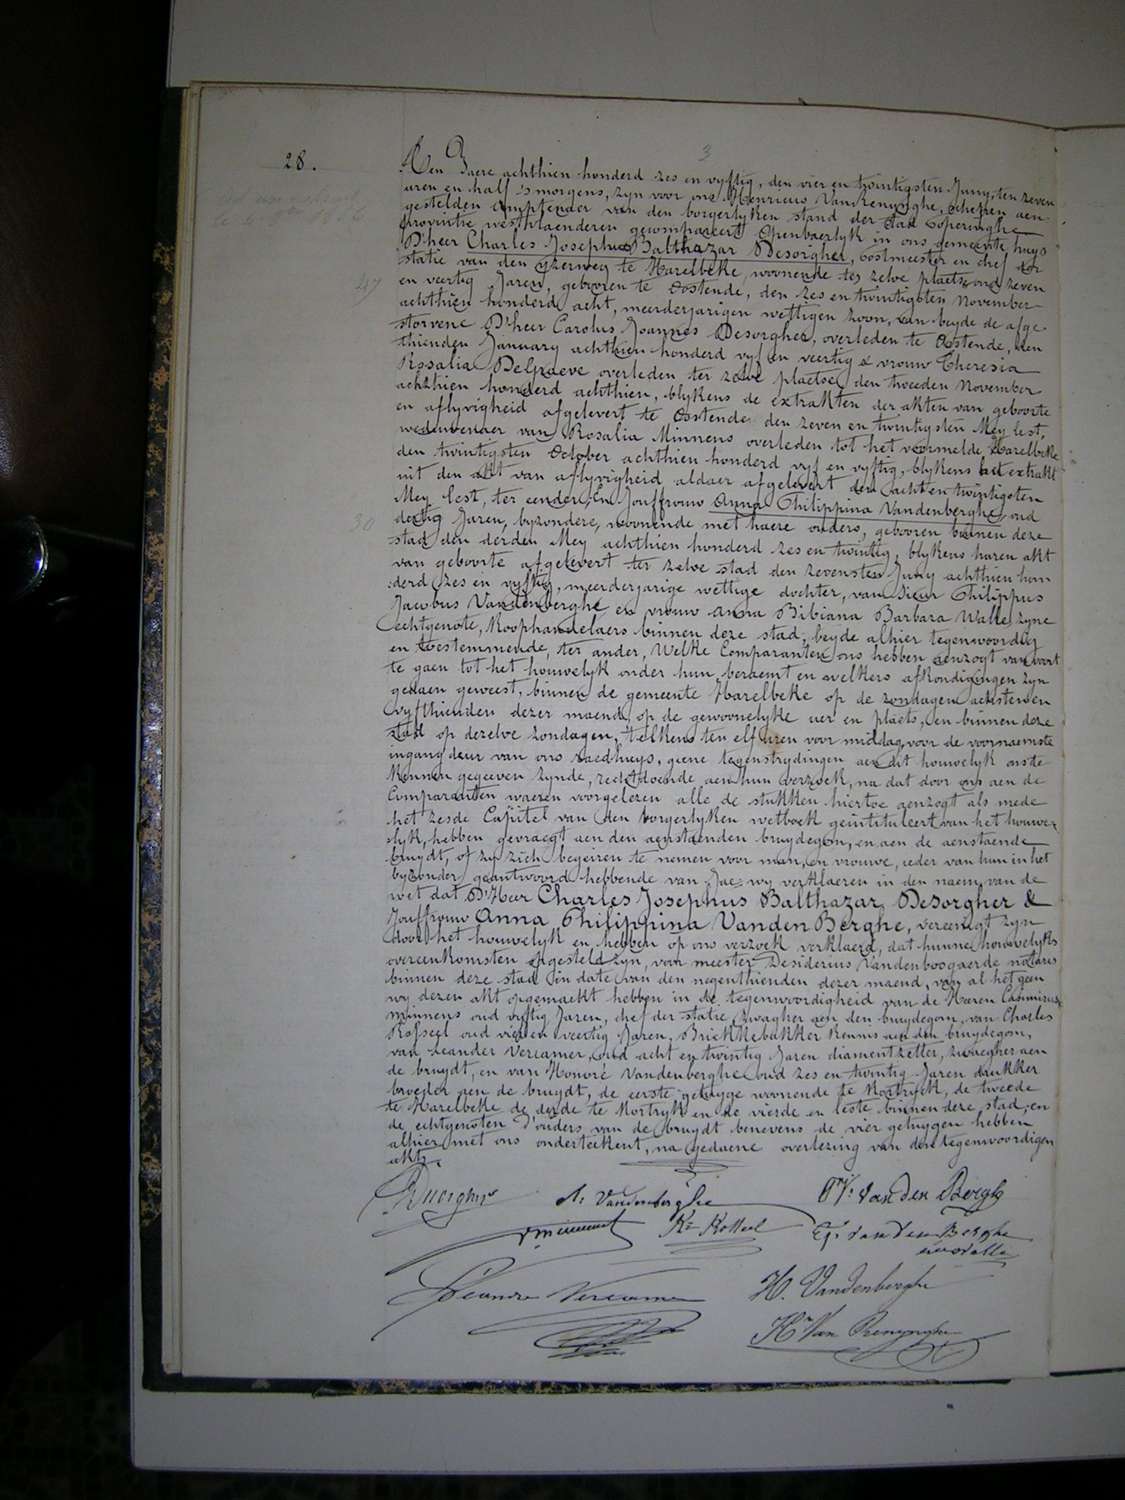 28.
3
Ten Jaere achthien honderd zes en vyftig, den vier en twintigsten Juny, ten zeven
uren en half 's morgens, zyn voor ons Henricus Van Renynghe, schepen aen-
gestelden Amptenaer van den borgerlyken stand der stad Poperinghe
Provintie westvlaenderen gecompareert openbaerlyk in ons gemeente huys
D'heer Charles Josephus Balthazar Desorgher, postmeester en chef der
statie van den yzerweg te Harelbeke, woonende ter zelve plaets, oud zeven
47
en veertig Jaren, gebooren te Oostende, den zes en twintigsten November
achthien honderd acht, meerderjarigen wettigen zoon, van beyde de afge-
storvene D'heer Carolus Joannes Desorgher, overleden te Oostende, den
thienden January achthien honderd vyf en veertig & vrouw Theresia
Rosalia Delpaeve overleden ter zelve plaetse den tweeden November
achthien honderd achthien, blykens de extrakten der akten van geboorte
en aflyvigheid afgelevert te Oostende den zeven en twintigsten Mey lest,
weduwenaer van Rosalia Minnens overleden tot het voormelde Harelbeke
den twintigsten October achthien honderd vyf en vyftig, blykens het extrakt
uit den akt van aflyvigheid aldaer afgelevert den acht en twintigsten
Mey lest, ter eender, en Jouffrouw Anna Philippina Vandenberghe, oud
30
dertig Jaren, byzondere, woonende met haere ouders, gebooren binnen deze
stad den derden Mey achthien honderd zes en twintig, blykens haren akt
van geboorte afgelevert ter zelve stad den zevensten Juny achthien hon
derd zes en vyftig, meerderjarige wettige dochter, van Sieur Philippus
Jacobus Vandenberghe en vrouw Anna Bibiana Barbara Walle zyne
echtgenote, Koophandelaers binnen deze stad, beyde alhier tegenwoordig
en toestemmende, ter ander, Welke Comparanten ons hebben aenzogt van voort
te gaen tot het houwelyk onder hun beraemt en welkers afkondigingen zyn
gedaen geweest, binnen de gemeente Harelbeke op de zondagen achtsten en
vyfthienden dezer maend, op de gewoonelyke uer en plaets, en binnen deze
stad op dezelve zondagen, telkens ten elf uren voor middag voor de voornaemste
ingang deur van ons raedhuys, geene tegenstrydingen aen dit houwelyk ons te
kennen gegeeven zynde, recht doende aen hun verzoek, na dat door ons aen de
Comparanten waeren voorgelezen alle de stukken hiertoe aenzogt als mede
het zesde Capitel van den borgerlyken wetboek geintituleert van het houwe-
lyk, hebben gevraegt aen den aenstaenden bruydegom, en aen de aenstaende
bruydt, of zy zich begeiren te nemen voor man, en vrouwe, ieder van hun in het
byzonder geantwoord hebbende van Jae wy verklaeren in den naem van de
wet dat D'Heer Charles Josephus Balthazar Desorgher &
Jouffrouw Anna Philippina Vanden Berghe, vereenigt zyn
door het houwelyk en hebben op ons verzoek verklaerd, dat hunne houwelyks
overeenkomsten opgesteld zyn, voor meester Desiderius Vandenboogaerde notaris
binnen deze stad in date van den negenthienden dezer maend, van al het geen
wy dezen akt opgemaekt hebben in de tegenwoordigheid van de Heeren Casimirus
Minnens oud vyftig Jaren, chef der statie, zwagher aen den bruydegom, van Charles
Rosseel oud vier en veertig Jaren, Briekkebakker kennis aen den bruydegom,
van Leander Vercamer, oud acht en twintig Jaren diamentzetter, zwaegher aen
de bruydt, en van Honoré Vandenberghe oud zes en twintig Jaren drukker
broeder aen de bruydt, de eerste getuyge woonende te Kortryck, de tweede
te Harelbeke de derde te Kortryk en de vierde en leste binnen deze stad, en
de echtgenoten d'ouders van de bruydt benevens de vier getuygen hebben
alhier met ons onderteekent, na gedaene overlezing van den tegenwoordigen
akt.
Desorgher A. Vandenberghe Ph. Van Den Bergh
C. Minnens Ks Rosseel Ep. van den Berghe
née Walle
Léandre Vercamer H. Vandenberghe
Hri Van Renynghe